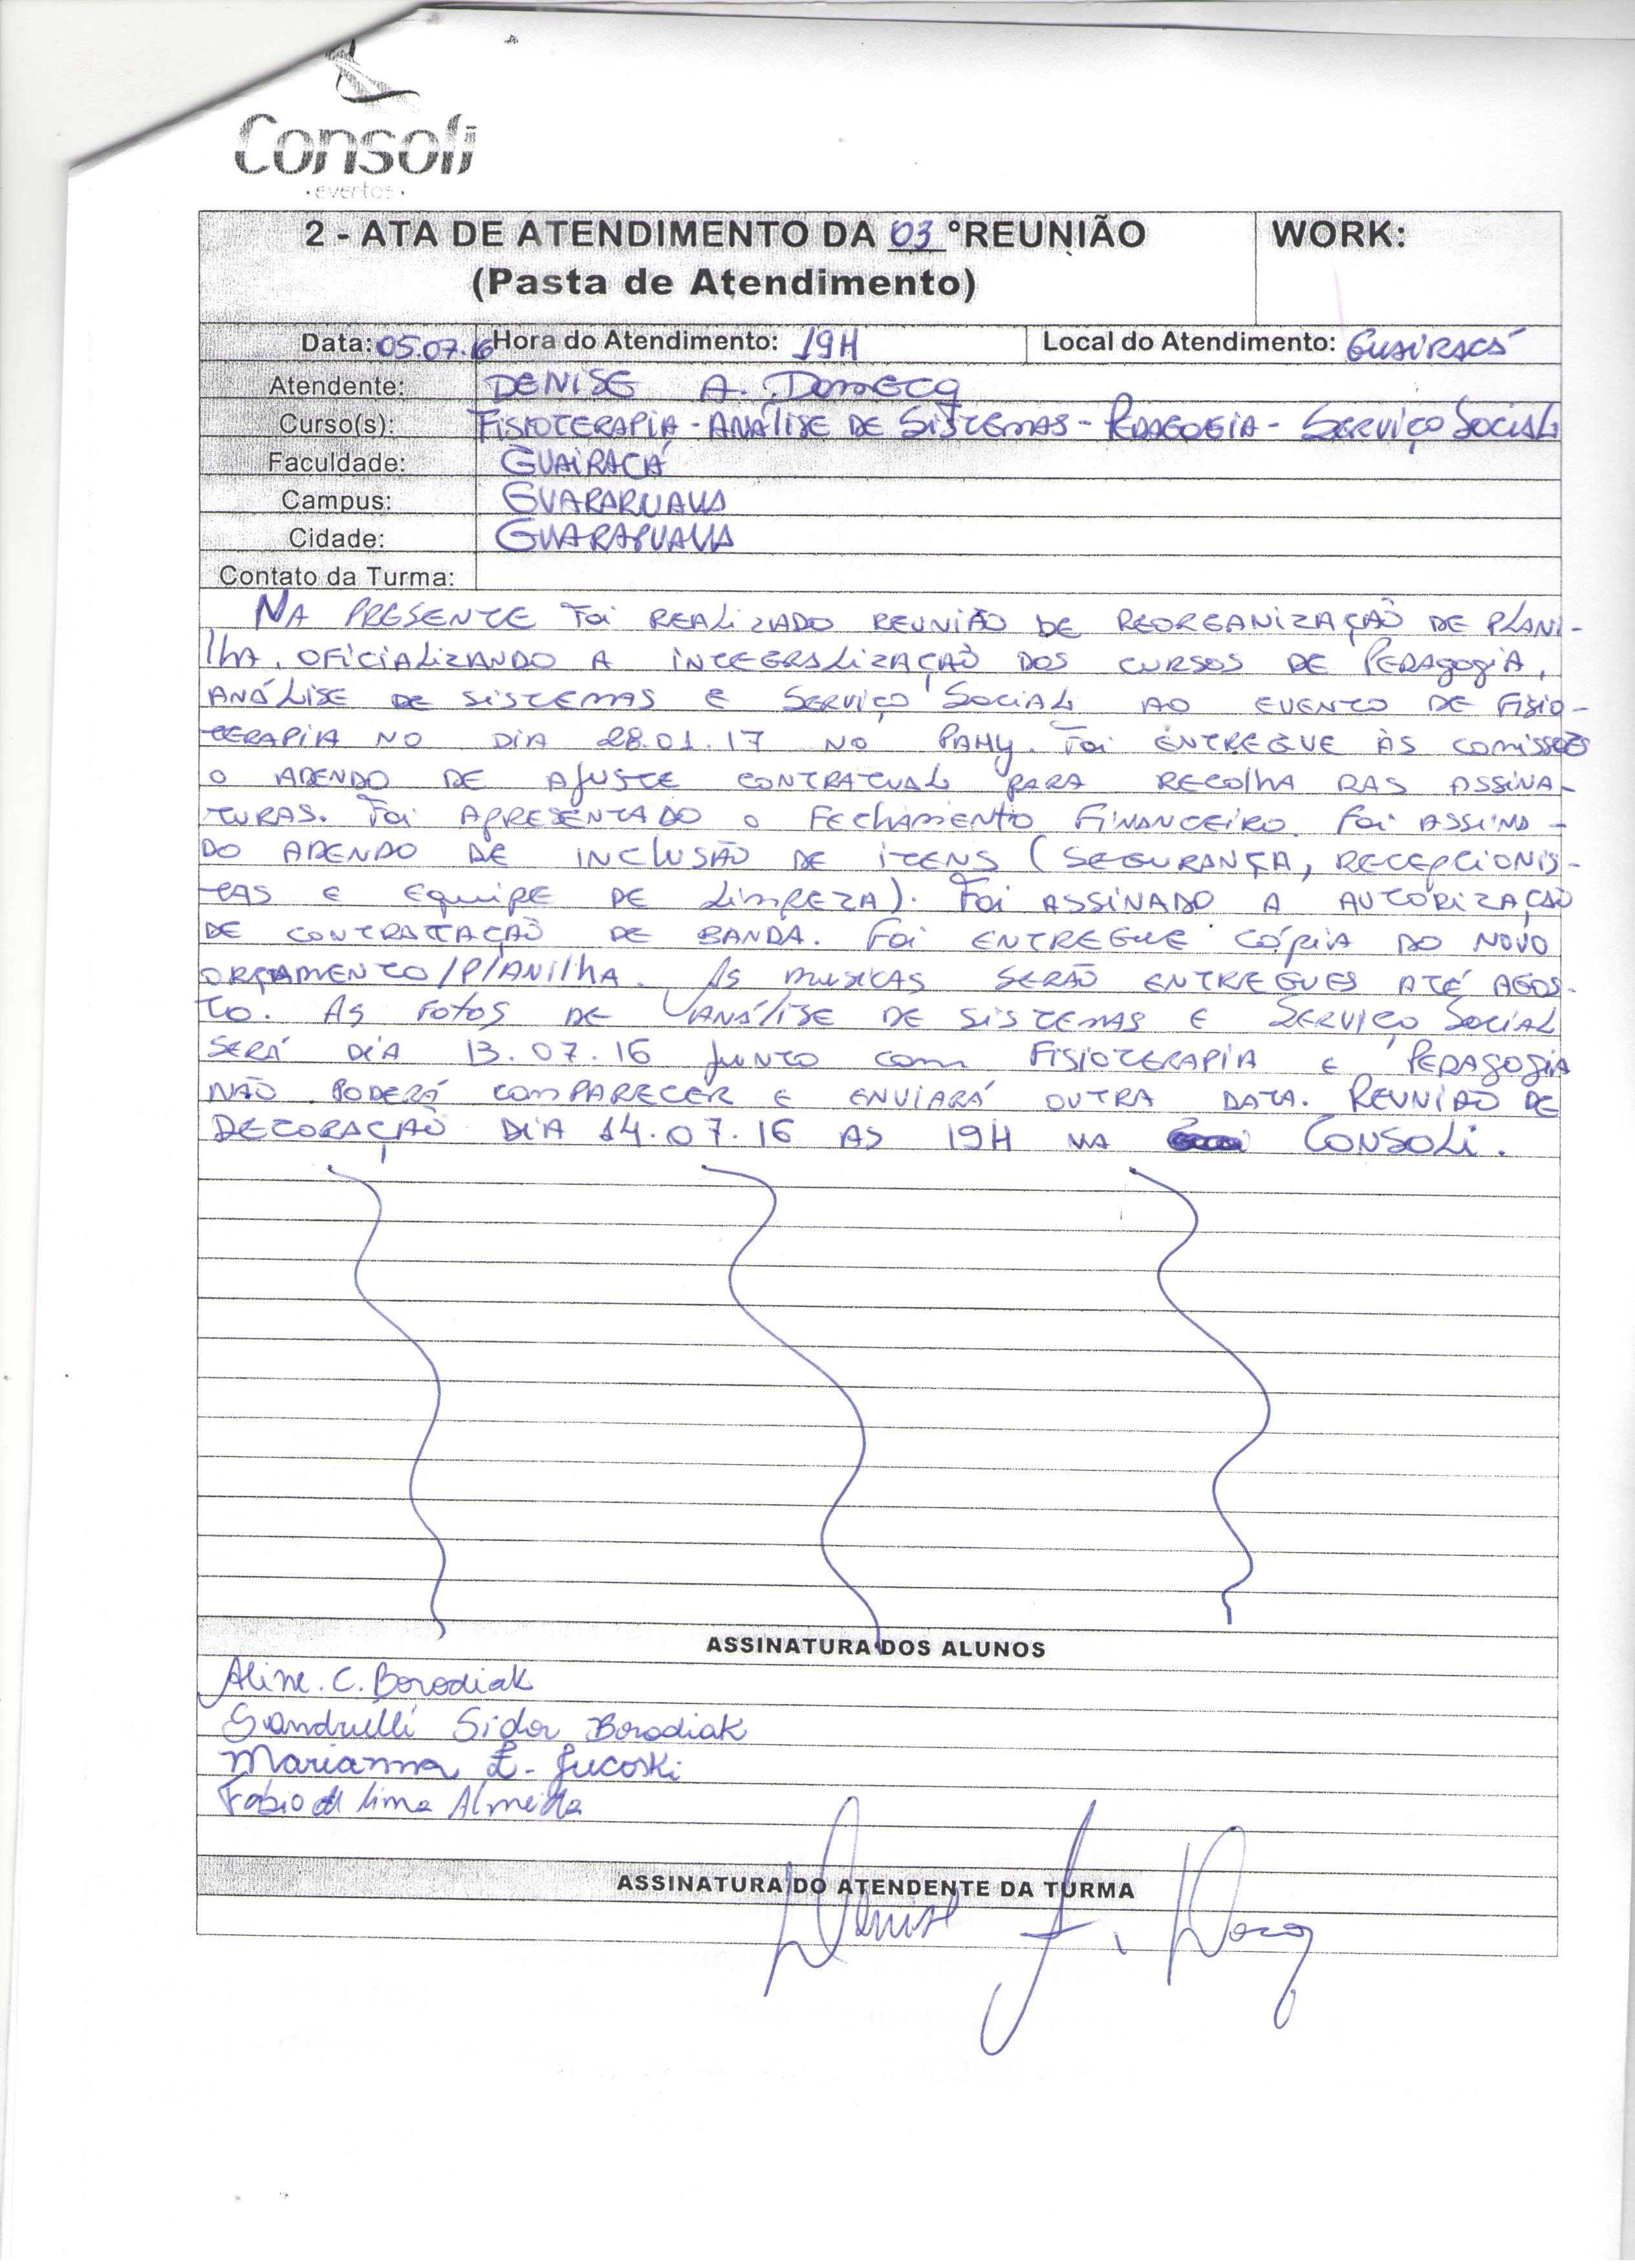 Consoli
• eventos •
2 - ATA DE ATENDIMENTO DA 03 °REUNIÃO
(Pasta de Atendimento)
WORK:
Data: 05.07.16 Hora do Atendimento: 19H Local do Atendimento: GUAIRACÁ
Atendente: DENISE A.
Curso(s): FISIOTERAPIA - ANÁLISE DE SISTEMAS - PEDAGOGIA - SERVIÇO SOCIAL
Faculdade: GUAIRACÁ
Campus: GUARAPUAVA
Cidade: GUARAPUAVA
Contato da Turma:
NA PRESENTE FOI REALIZADO REUNIÃO DE REORGANIZAÇÃO DE PLANI-
LHA, OFICIALIZANDO A INTEGRALIZAÇÃO DOS CURSOS DE PEDAGOGIA,
ANÁLISE DE SISTEMAS E SERVIÇO SOCIAL AO EVENTO DE FISIO-
TERAPIA NO DIA 28.01.17 NO PAHY. FOI ENTREGUE ÀS COMISSÕES
O ADENDO DE AJUSTE CONTRATUAL PARA RECOLHA DAS ASSINA-
TURAS. FOI APRESENTADO O FECHAMENTO FINANCEIRO. FOI ASSINA-
DO ADENDO DE INCLUSÃO DE ITENS (SEGURANÇA, RECEPCIONIS-
TAS E EQUIPE DE LIMPEZA). FOI ASSINADO A AUTORIZAÇÃO
DE CONTRATAÇÃO DE BANDA. FOI ENTREGUE CÓPIA DO NOVO
ORÇAMENTO/PLANILHA. AS MUSICAS SERÃO ENTREGUES ATÉ AGOS-
TO. AS FOTOS DE ANÁLISE DE SISTEMAS E SERVIÇO SOCIAL
SERÁ DIA 13.07.16 JUNTO COM FISIOTERAPIA E PEDAGOGIA
NÃO PODERÁ COMPARECER E ENVIARÁ OUTRA DATA. REUNIÃO DE
DECORAÇÃO DIA 14.07.16 AS 19H NA CONSOLI.
ASSINATURA DOS ALUNOS
Aline. C. Borodiak
Sandrielli Sidor Borodiak
Marianna Z. Jucoski
Fabio de Lima Almeida
ASSINATURA DO ATENDENTE DA TURMA
Denise A.